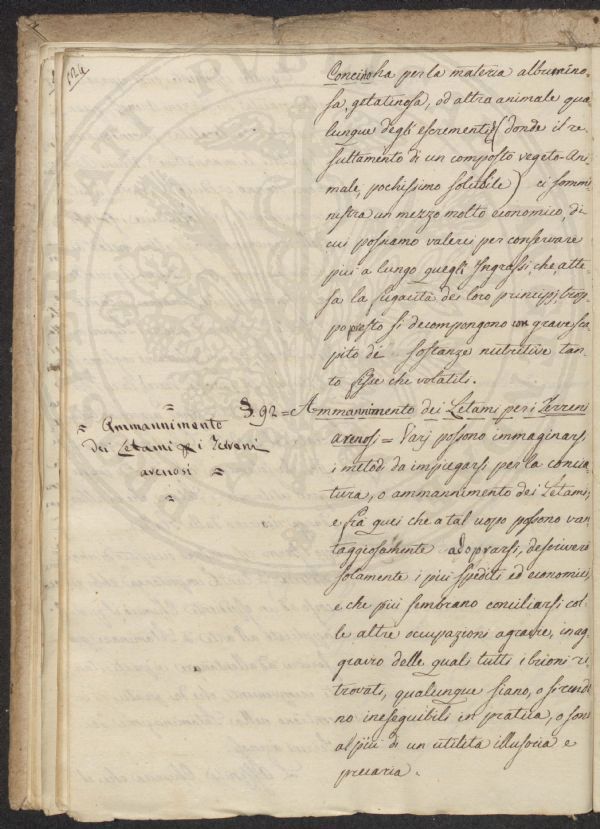 124
Concino ha per la materia albumino-
sa, gelatinosa, od altra animale qua-
lunque degli escrementi (donde il re-
sultamento di un composto vegeto-Ani-
male, pochissimo solubile) ci sommi-
nistra un mezzo molto economico, di
cui possiamo valerci per conservare
più a lungo quegli Ingrassi, che, atte-
sa la fugacità dei loro principj, trop-
po presto si decompongono con grave sca-
pito di sostanze nutritive tan-
to fisse che volatili.
§. 92 = Ammannimento dei Letami per i Terreni
arenosi = Varj possono immaginarsi
i metodi da impiegarsi per la concia-
tura, o ammannimento dei Letami,
e fra quei che a tal uopo possono van-
taggiosamente adoprarsi, descriverò
solamente i più spediti ed economici,
e che più sembrano conciliarsi col-
le altre occupazioni agrarie, in ag-
gravio delle quali tutti i
trovati, qualunque siano, o si rendo-
no ineseguibili in pratica, o sono
al più di un utilità illusoria e
precaria.
= Ammannimento
dei Letami per i Terreni
arenosi =